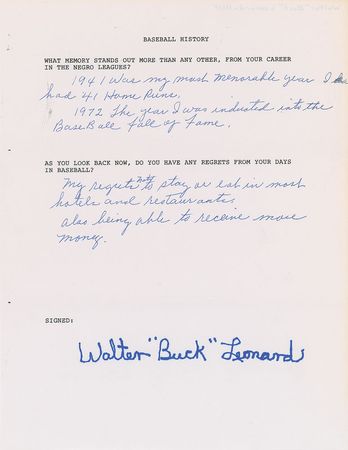 BASEBALL HISTORY
WHAT MEMORY STANDS OUT MORE THAN ANY OTHER, FROM YOUR CAREER
IN THE NEGRO LEAGUES?
1941 was my most memorable year I
had 41 Home Runs.
1972 The year I was inducted into the
BaseBall Hall of Fame.
AS YOU LOOK BACK NOW, DO YOU HAVE ANY REGRETS FROM YOUR DAYS
IN BASEBALL?
My regrets not to stay or eat in most
hotels and restaurants.
also being able to receive more
money.
SIGNED:
Walter "Buck" Leonard